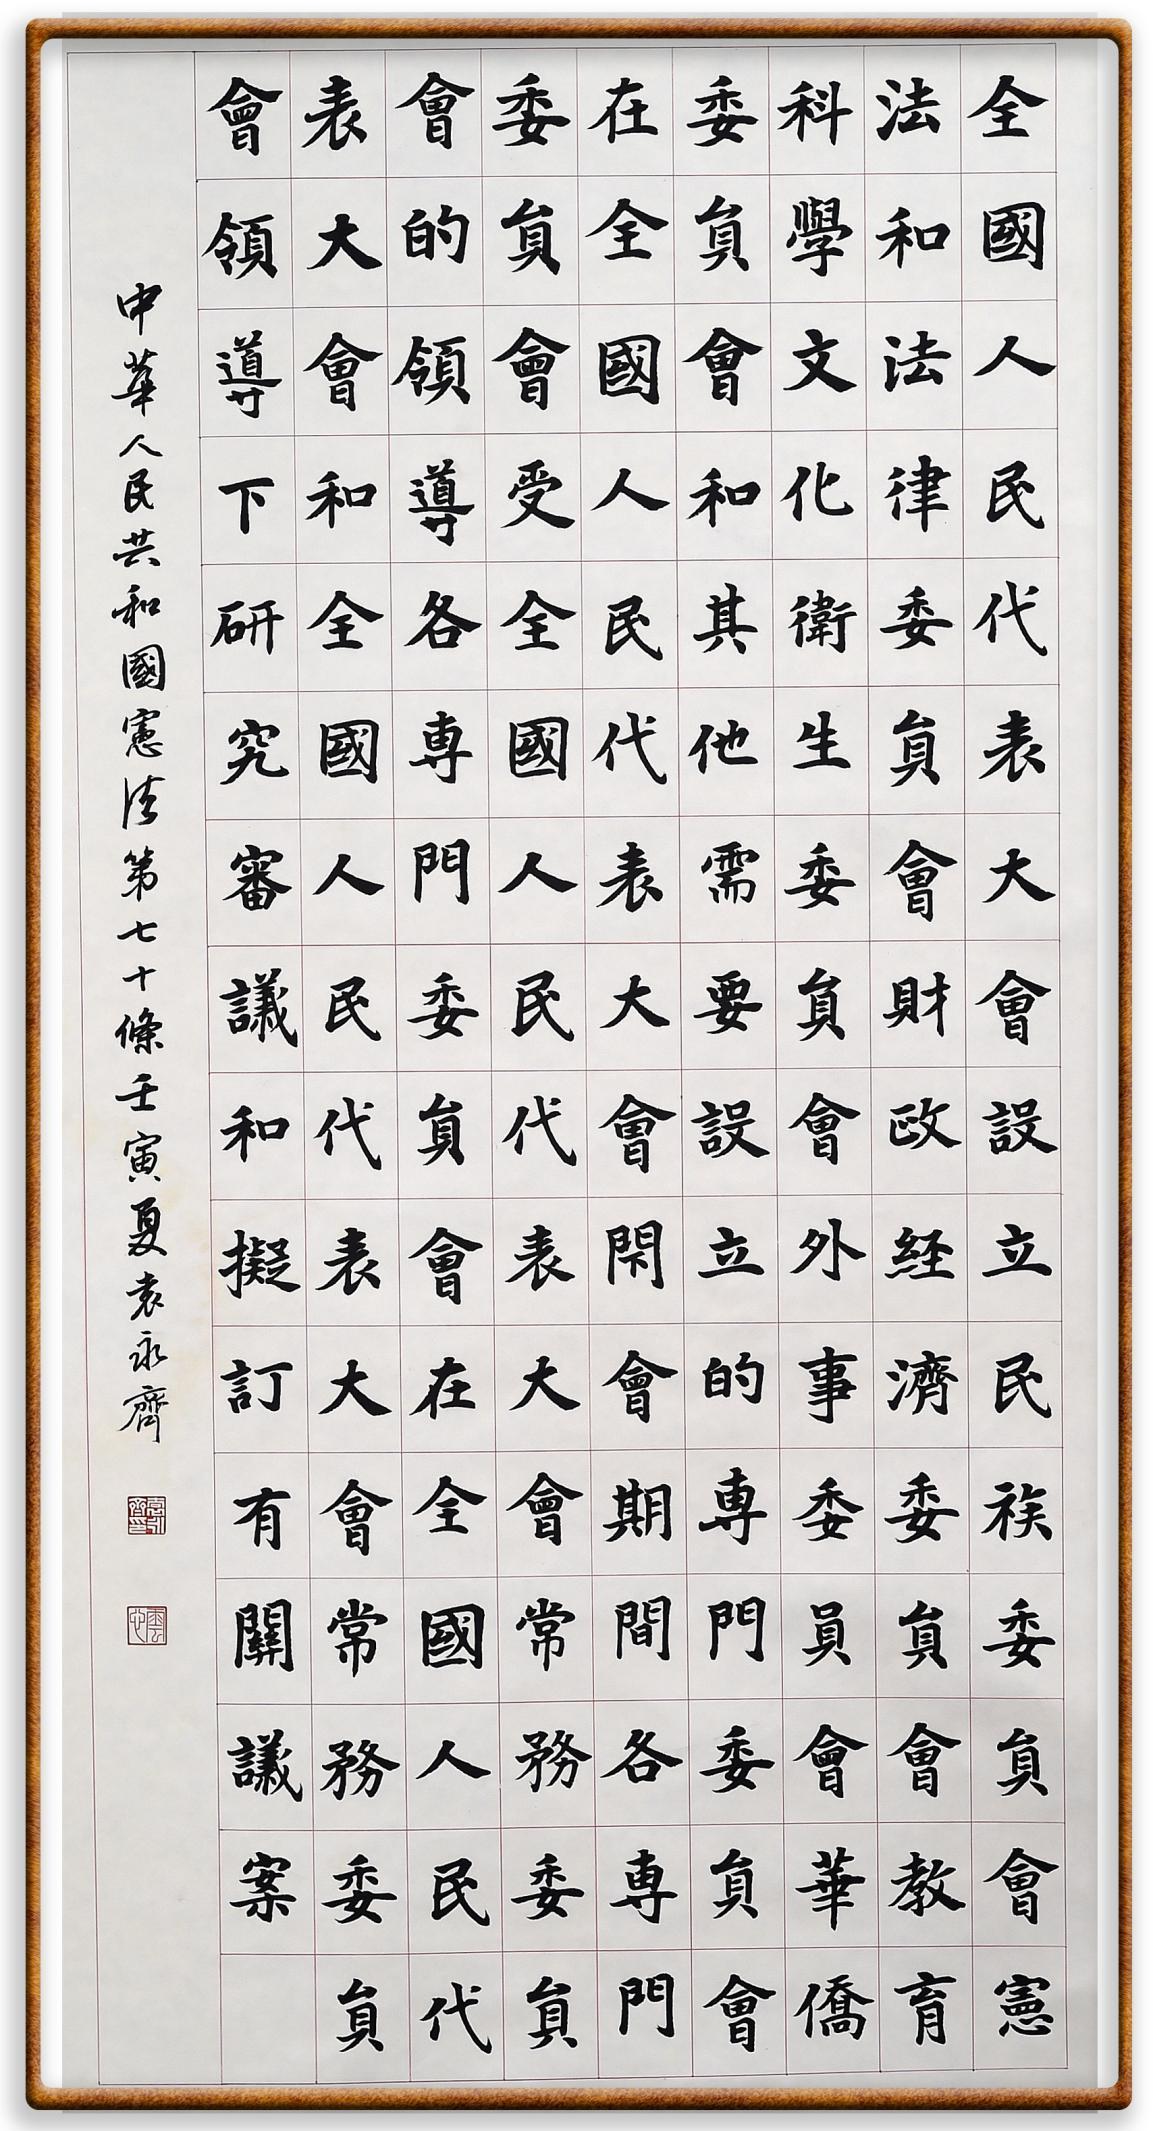 全國人民代表大會設立民族委員會憲
法和法律委員會財政経濟委員會教育
科學文化衛生委員會外事委員會華僑
委員會和其他需要設立的専門委員會
在全國人民代表大會閉會期間各専門
委員會受全國人民代表大會常務委員
會的領導各専門委員會在全國人民代
表大會和全國人民代表大會常務委員
會領導下研究審議和擬訂有關議案
中華人民共和國憲法第七十條壬寅夏袁永齊